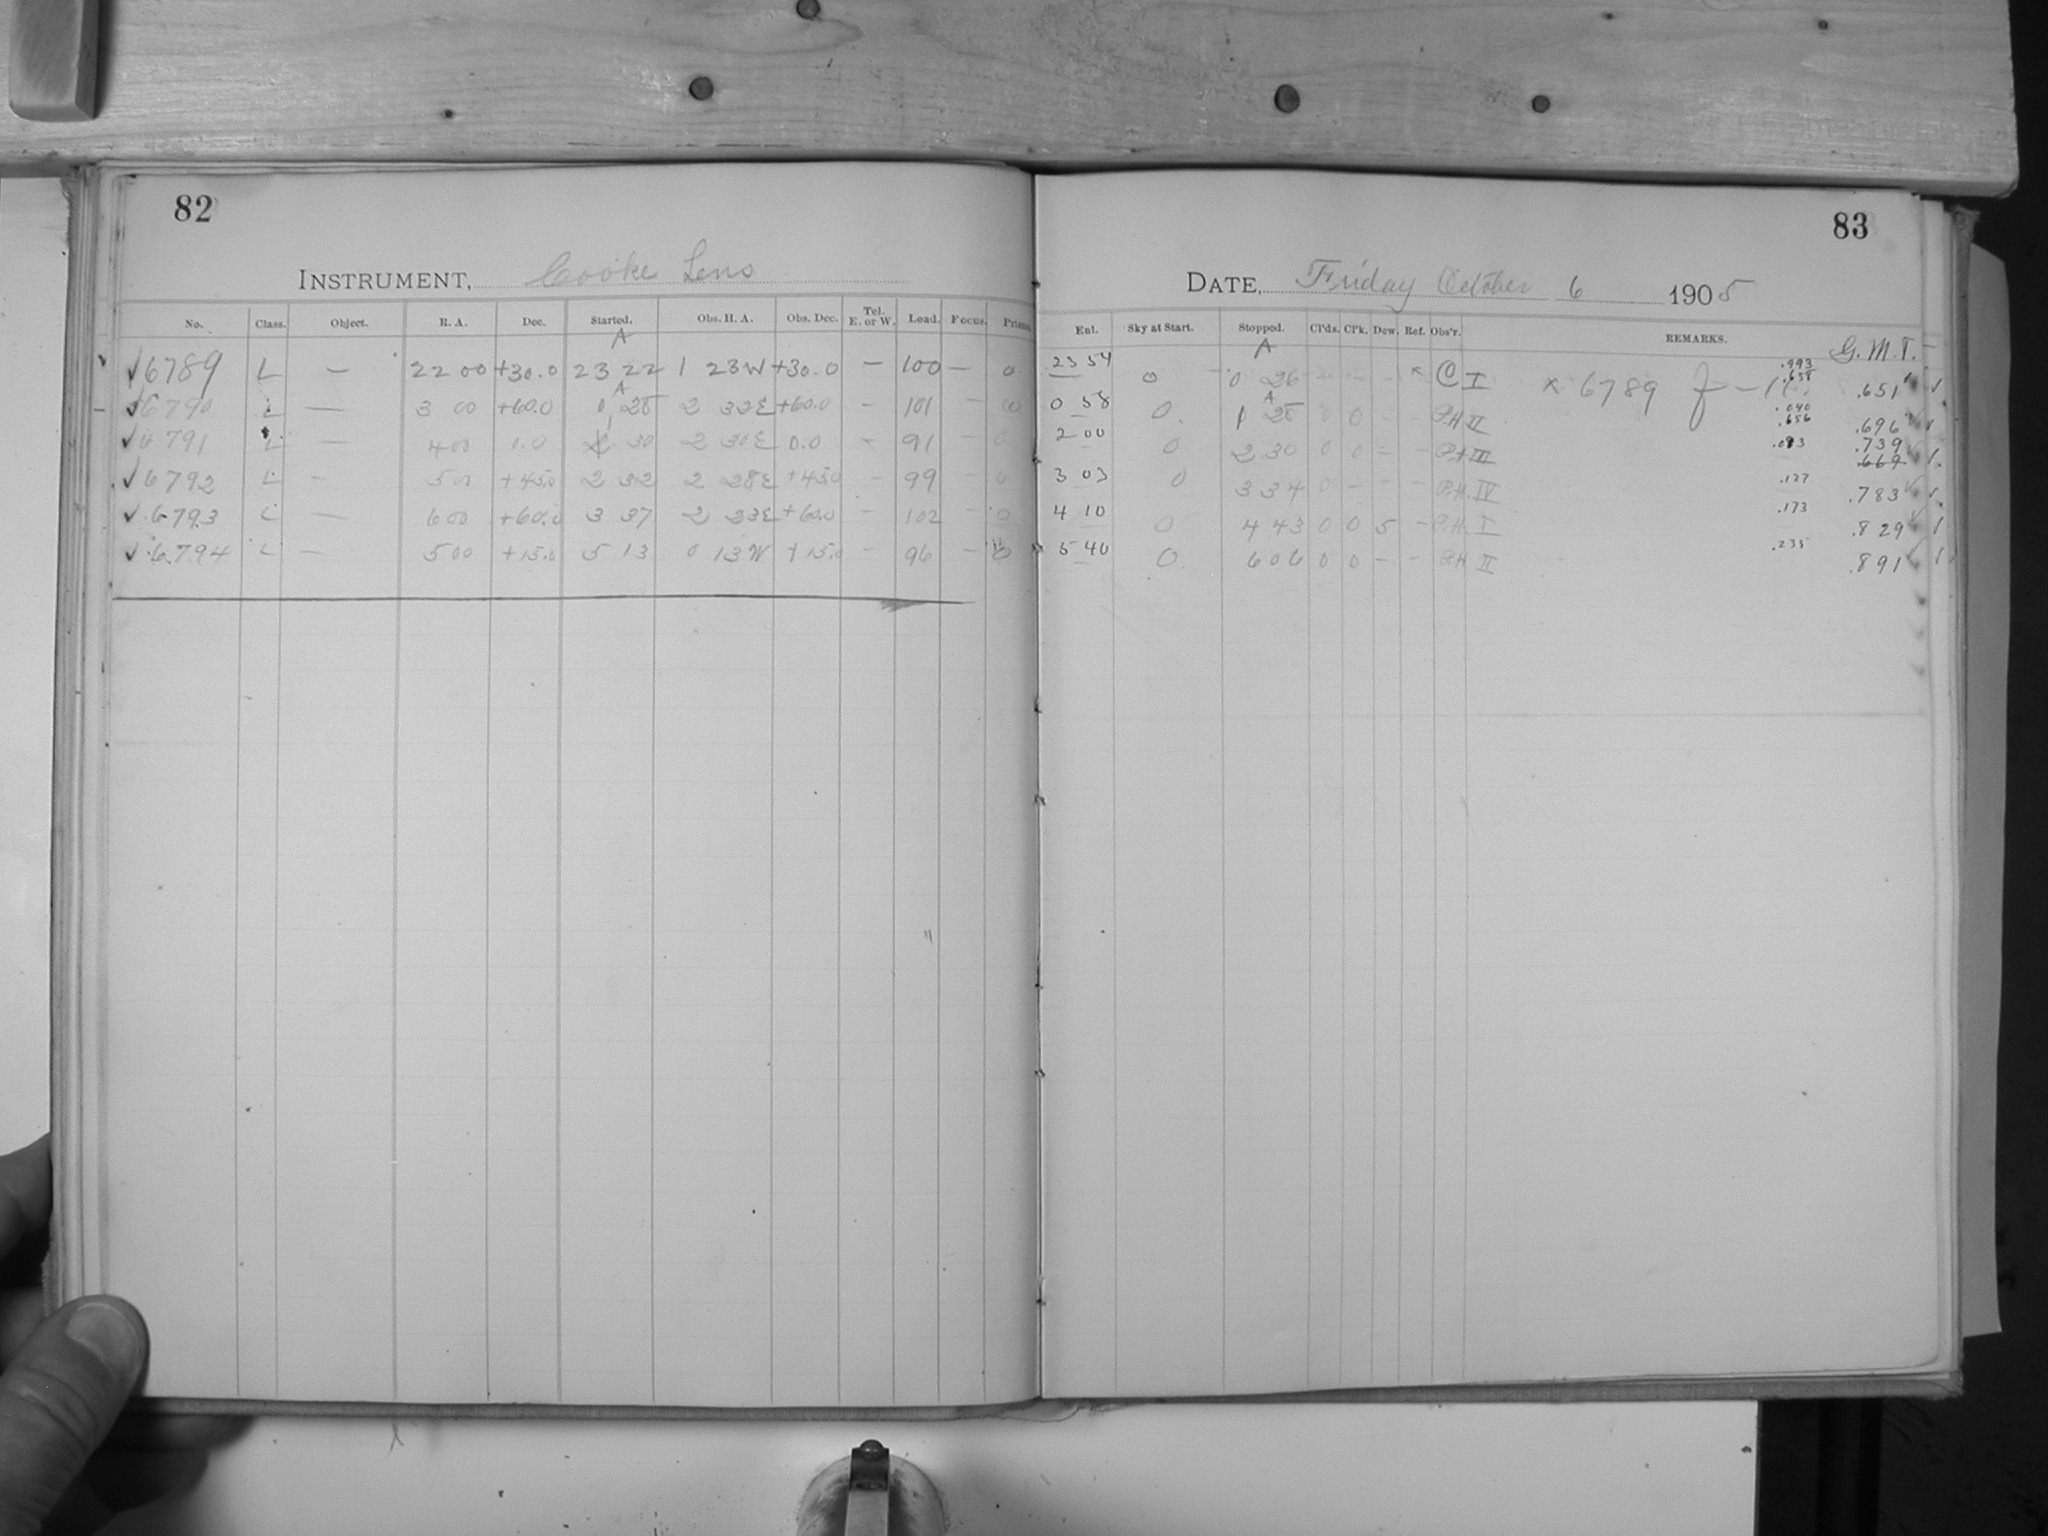 82
INSTRUMENT, Cooke Lens
No. Class. Object. R. A. Dec. Started. Obs. H. A. Obs. Dec. Tel. E. or W. Load. Focus. Prism.
A
✓ 6789 L — 22 00 +30.0 23 22 1 23W +30.0 — 100 — 0
A
✓ 6790 L — 3 00 +60.0 0 28 2 32E +60.0 — 101 — 0
✓ 6791 L — 4 00 0.0 1 30 2 30E 0.0 — 91 — 0
✓ 6792 L — 5 00 +45.0 2 32 2 28E +45.0 — 99 — 0
✓ 6793 L — 6 00 +60.0 3 37 2 23E +60.0 — 102 — 0
✓ 6794 L — 5 00 +15.0 5 13 0 13W +15.0 — 96 — 0
83
DATE, Friday October 6 1905
Ent. Sky at Start. Stopped. Cl'ds. Cl'k. Dew. Ref. Obs'r. REMARKS.
G.M.T.
A
23 54 0 0 26 — — — x C I x 6789 .993 .658 .651
A
0 58 0 1 28 0 0 — — P.H II .040 .656 .696
2 00 0 2 30 0 0 — — P.H III .083 .739 .669
3 03 0 3 34 0 — — — P.H. IV .127 .783
4 10 0 4 43 0 0 5 — P.H. I .173 .829
5 40 0 6 06 0 0 — — P.H II .235 .891